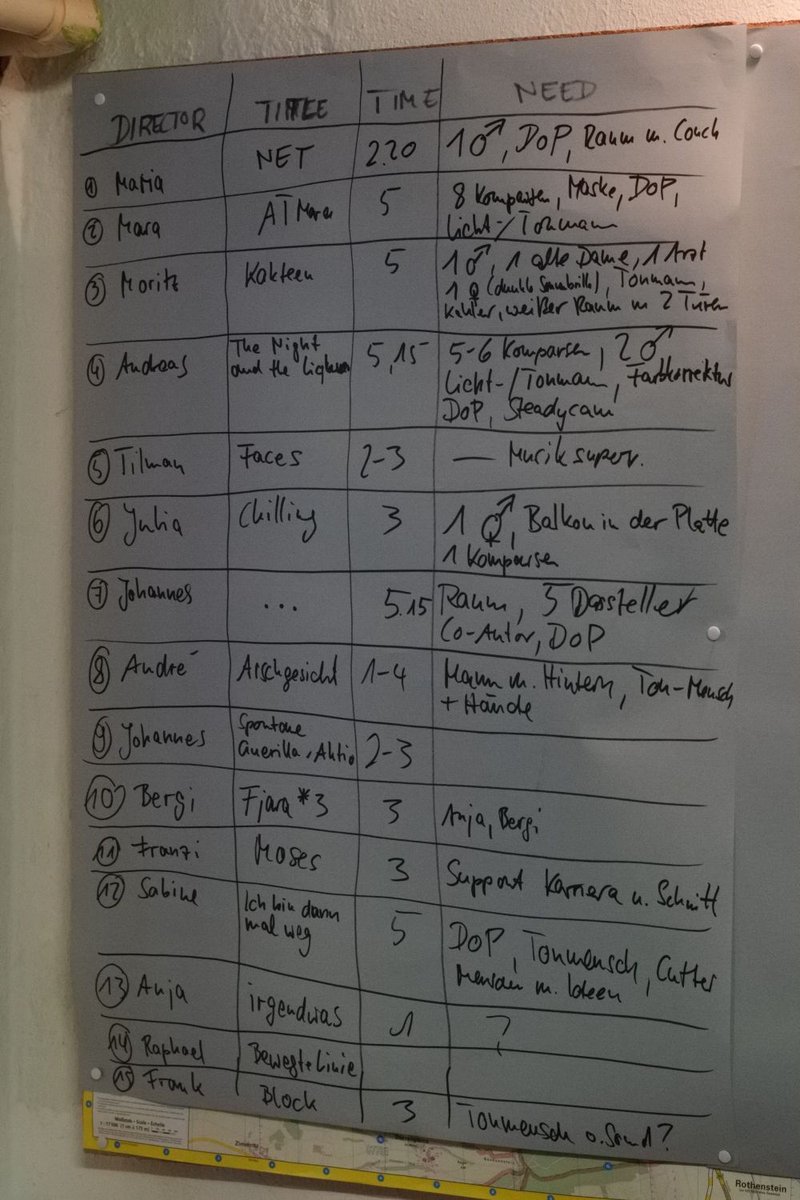 DIRECTOR TITLE TIME NEED
① Maria NET 2.20 1♂, DoP, Raum m. Couch
② Mara AT Mara 5 8 Komparsen, Maske, DoP,
Licht-/Tonmann
③ Moritz Kakteen 5 1♂, 1 alte Dame, 1 Arzt
1♀ (dunkle Sonnenbrille), Tonmann,
weißer Raum m 2 Türen
④ Andreas The Night 5,15 5-6 Komparsen, 2♂
and the Licht-/Tonmann, Farbkorrektur
DoP, Steadycam
⑤ Tilman Faces 2-3 — Musik superv.
⑥ Julia Chilling 3 1 ⚥, Balkon in der Platte
1 Komparsen
⑦ Johannes ... 5.15 Raum, 5 Darsteller
Co-Autor, DoP
⑧ André Arschgesicht 1-4 Mann m. Hintern, Ton-Mensch
+ Hände
⑨ Johannes Spontane 2-3
Guerilla-Aktio
⑩ Bergi Fjara *3 3 Anja, Bergi
⑪ Franzi Moses 3 Support Kamera u. Schnitt
⑫ Sabine Ich bin dann 5 DoP, Tonmensch, Cutter
mal weg Menschen m. Ideen
⑬ Anja irgendwas 1 ?
⑭ Raphael Bewegte Linie
⑮ Frank Block 3 Tonmensch o. Sound?
Rothenstein